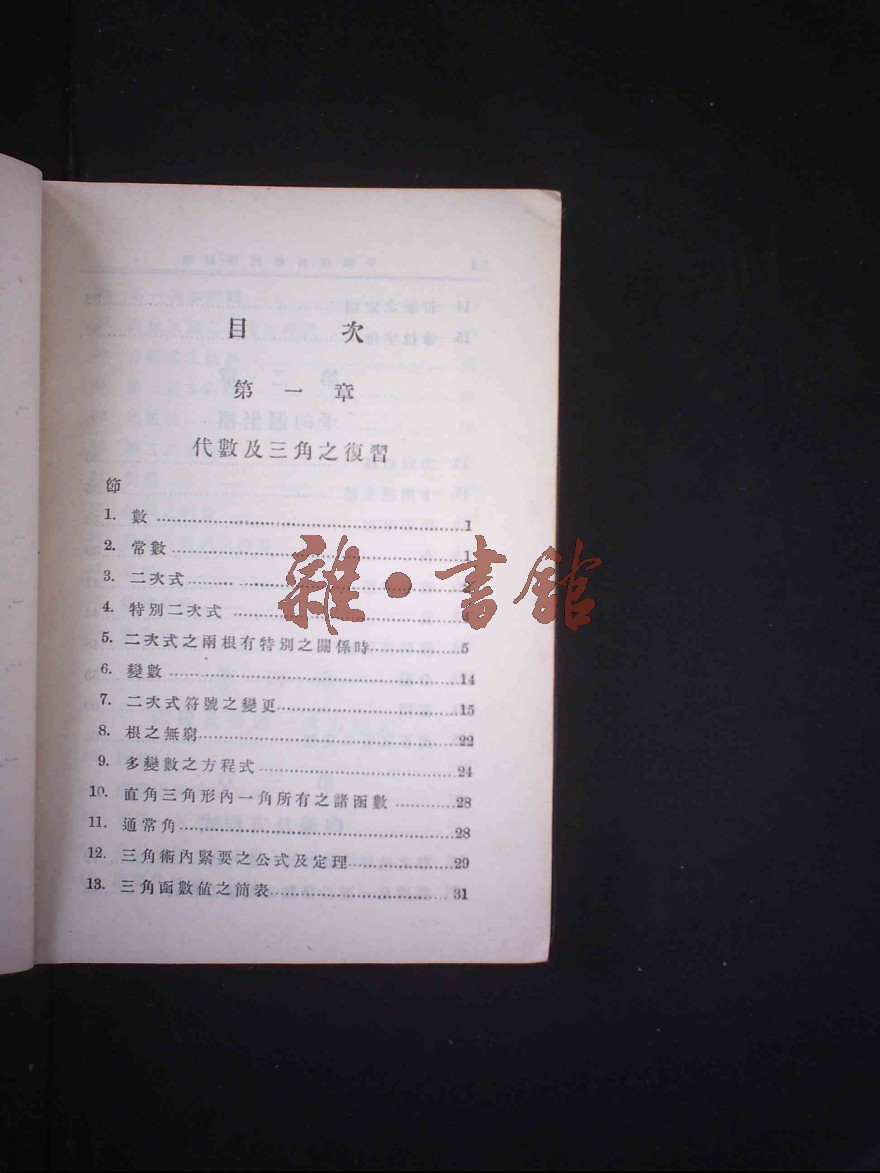 目　次
第　一　章
代數及三角之復習
節
1. 數 ................................1
2. 常數 ................................1
3. 二次式................................
4. 特別二次式 ................................4
5. 二次式之兩根有特別之關係時................5
6. 變數................................14
7. 二次式符號之變更................................15
8. 根之無窮................................22
9. 多變數之方程式................................24
10. 直角三角形內一角所有之諸函數 ..........28
11. 通常角................................28
12. 三角術內緊要之公式及定理................29
13. 三角函數值之簡表................................31
雜·書館